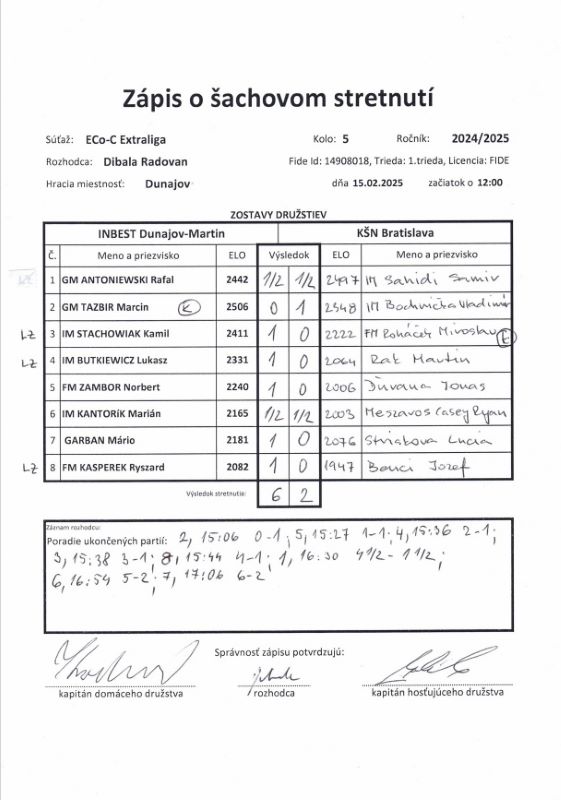 Zápis o šachovom stretnutí
Súťaž: ECo-C Extraliga Kolo: 5 Ročník: 2024/2025
Rozhodca: Dibala Radovan Fide Id: 14908018, Trieda: 1.trieda, Licencia: FIDE
Hracia miestnosť: Dunajov dňa 15.02.2025 začiatok o 12:00
ZOSTAVY DRUŽSTIEV
INBEST Dunajov-Martin KŠN Bratislava
Č. Meno a priezvisko ELO Výsledok ELO Meno a priezvisko
1 GM ANTONIEWSKI Rafal 2442 1/2 1/2 2497 IM Sahidi Samir
2 GM TAZBIR Marcin K 2506 0 1 2348 IM Bochnička Vladimír
LZ 3 IM STACHOWIAK Kamil 2411 1 0 2222 FM Roháček Miroslav K
LZ 4 IM BUTKIEWICZ Lukasz 2331 1 0 2064 Rak Martin
5 FM ZAMBOR Norbert 2240 1 0 2006 Ďuvana Jonas
6 IM KANTORíK Marián 2165 1/2 1/2 2003 Meszaros Casey Ryan
7 GARBAN Mário 2181 1 0 2076 Striakova Lucia
LZ 8 FM KASPEREK Ryszard 2082 1 0 1947 Jozef
Výsledok stretnutie: 6 2
Záznam rozhodcu:
Poradie ukončených partií: 2, 15:06 0-1; 5, 15:27 1-1; 4, 15:36 2-1;
3, 15:38 3-1; 8, 15:44 4-1; 1, 16:30 4 1/2 - 1 1/2;
6, 16:54 5-2; 7, 17:06 6-2
Správnosť zápisu potvrdzujú:
kapitán domáceho družstva rozhodca kapitán hosťujúceho družstva